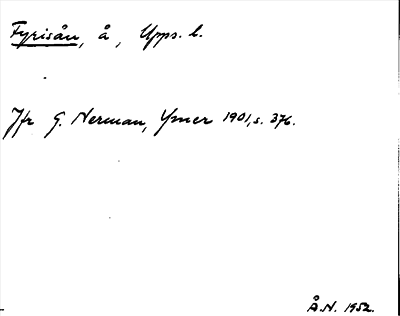 Fyrisån, å, Upps. l.
Jfr G. Nerman, Ymer 1901, s. 376.
Å.N. 1952.